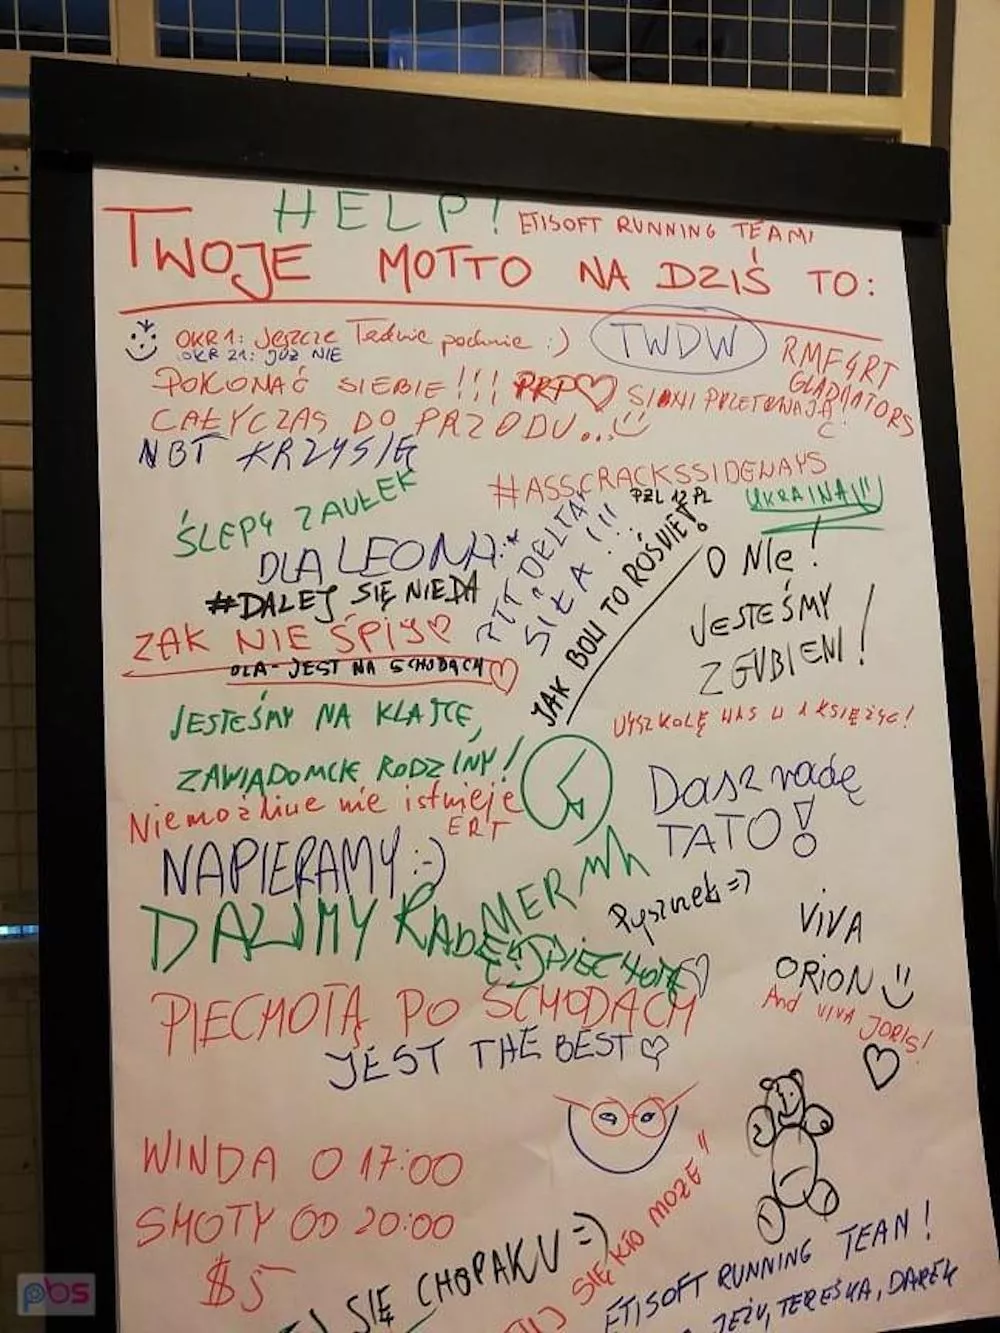 HELP!
ETISOFT RUNNING TEAM!
TWOJE MOTTO NA DZIŚ TO:
OKR 1: Jeszcze :)
OKR 21: JUŻ NIE
TWDW
RMF4RT
GLADIATORS
POKONAĆ SIEBIE!!! PRP♡
CAŁY CZAS DO PRZODU...
NBT KRZYSIĘ
#ASSCRACKSSIDEWAYS
PZL 12 PL
UKRAINA
ŚLEPY ZAUŁEK
DLA LEONA :*
DELTA
SIŁA!!!
JAK BOLI TO ROŚNIE!
O NIE!
JESTEŚMY
ZGUBIENI!
#DALEJ SIĘ NIEDA
ŻAK NIE ŚPI
DLA - JEST NA SCHODACH ♡
JESTEŚMY NA KLATCE,
ZAWIADOMCIE RODZINY!
WYSZKOLĘ WAS W 1 KSIĘŻYC!
Niemożliwe nie istnieje
ERT
Dasz radę
TATO!
NAPIERAMY :-)
DALIMY RADE
MER
Pysznek =)
VIVA
ORION
And VIVA JORIS!
♡
PIECHOTĄ PO SCHODACH
JEST THE BEST ♡
WINDA O 17:00
SMOTY OD 20:00
$5
SIĘ CHOPAKU =)
SIĘ KTO MOŻE"
ETISOFT RUNNING TEAM!
JEŻY, TEREŚKA, DAREK
pbs